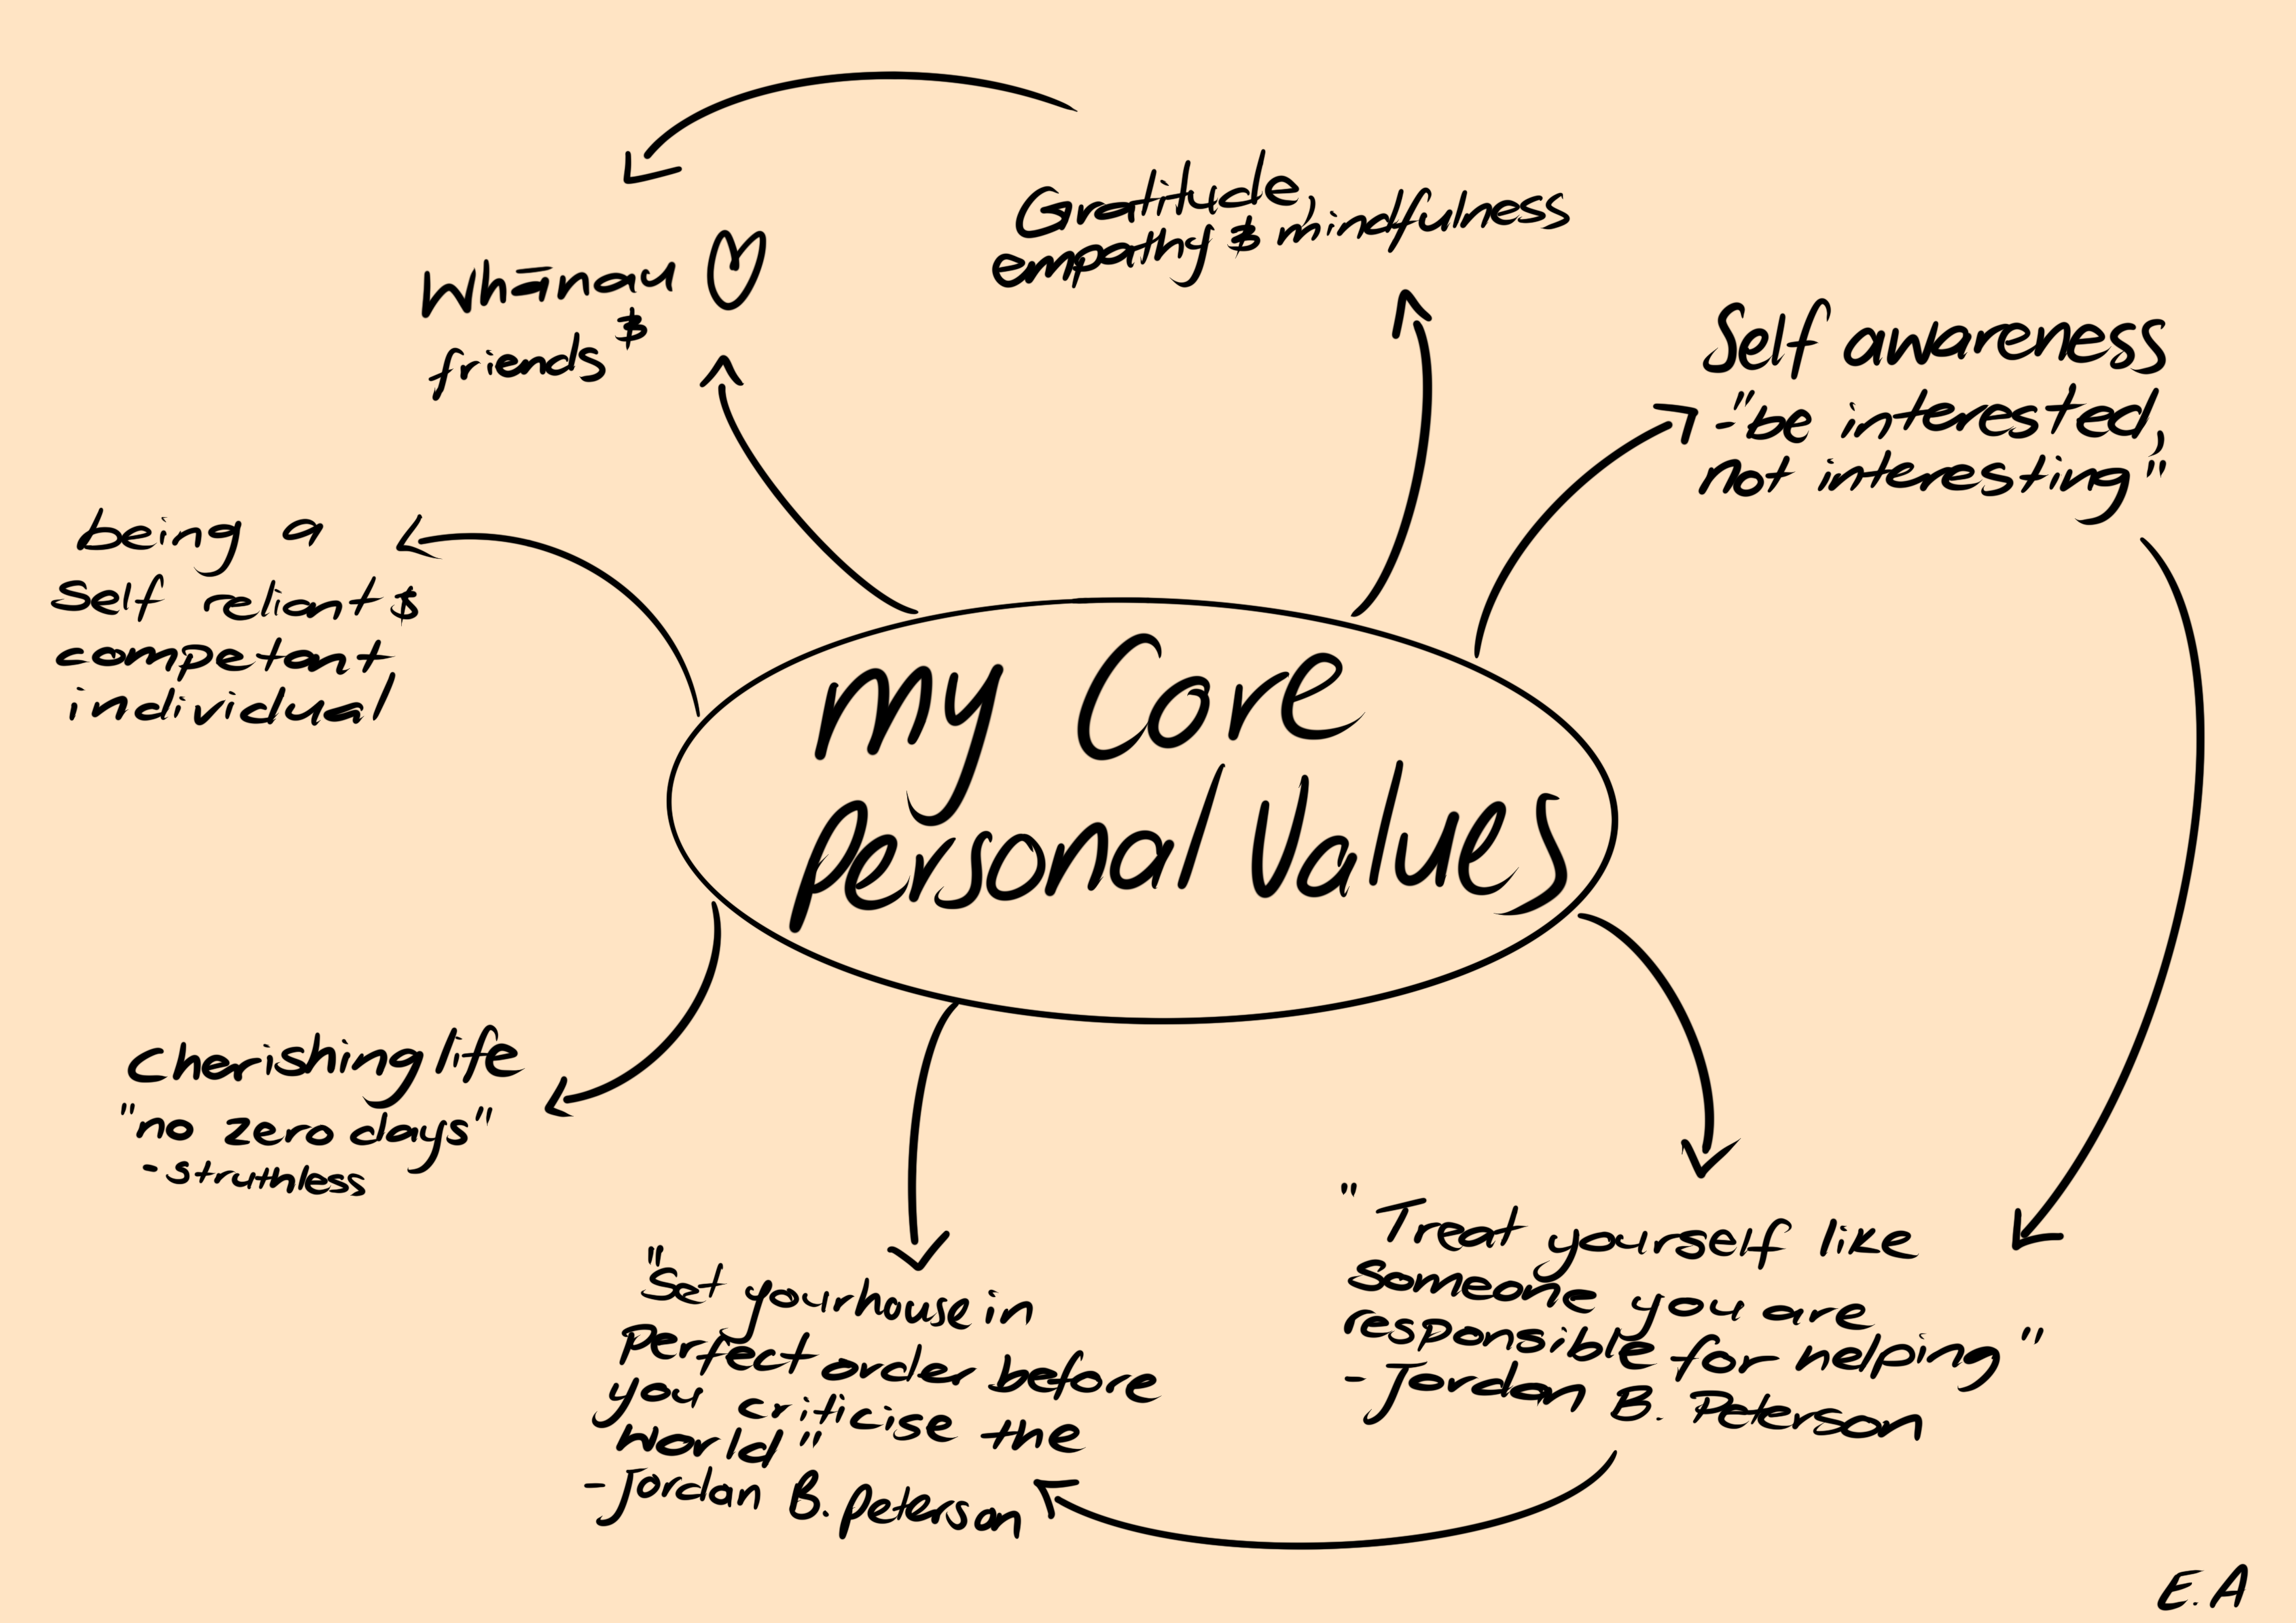 Gratitude,
empathy & mindfulness
Whānau
&
friends
Self awareness
-"be interested,
not interesting"
being a
Self reliant &
competant
individual
my Core
Personal Values
Cherishing life
"no zero days"
- struthless
"Set your house in
perfect order before
you criticise the
world"
- Jordan B. Peterson
"Treat yourself like
someone you are
responsible for helping"
- Jordan B. Peterson
E.A